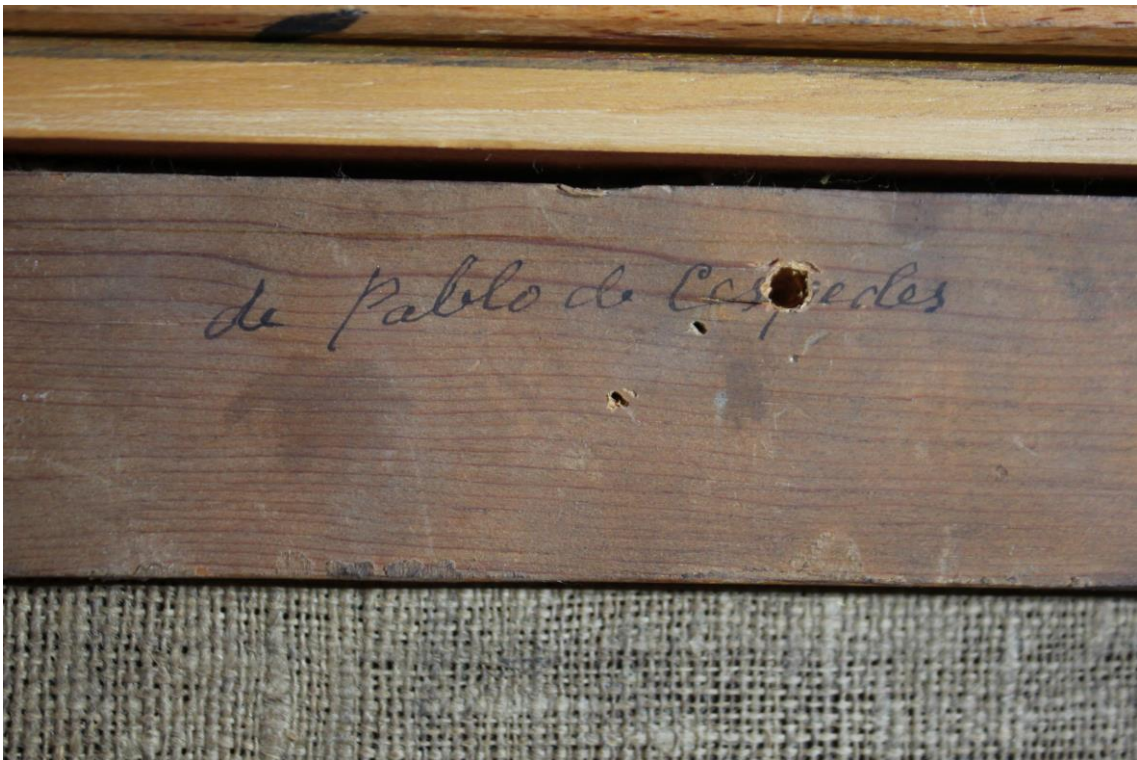 de Pablo de Cespedes